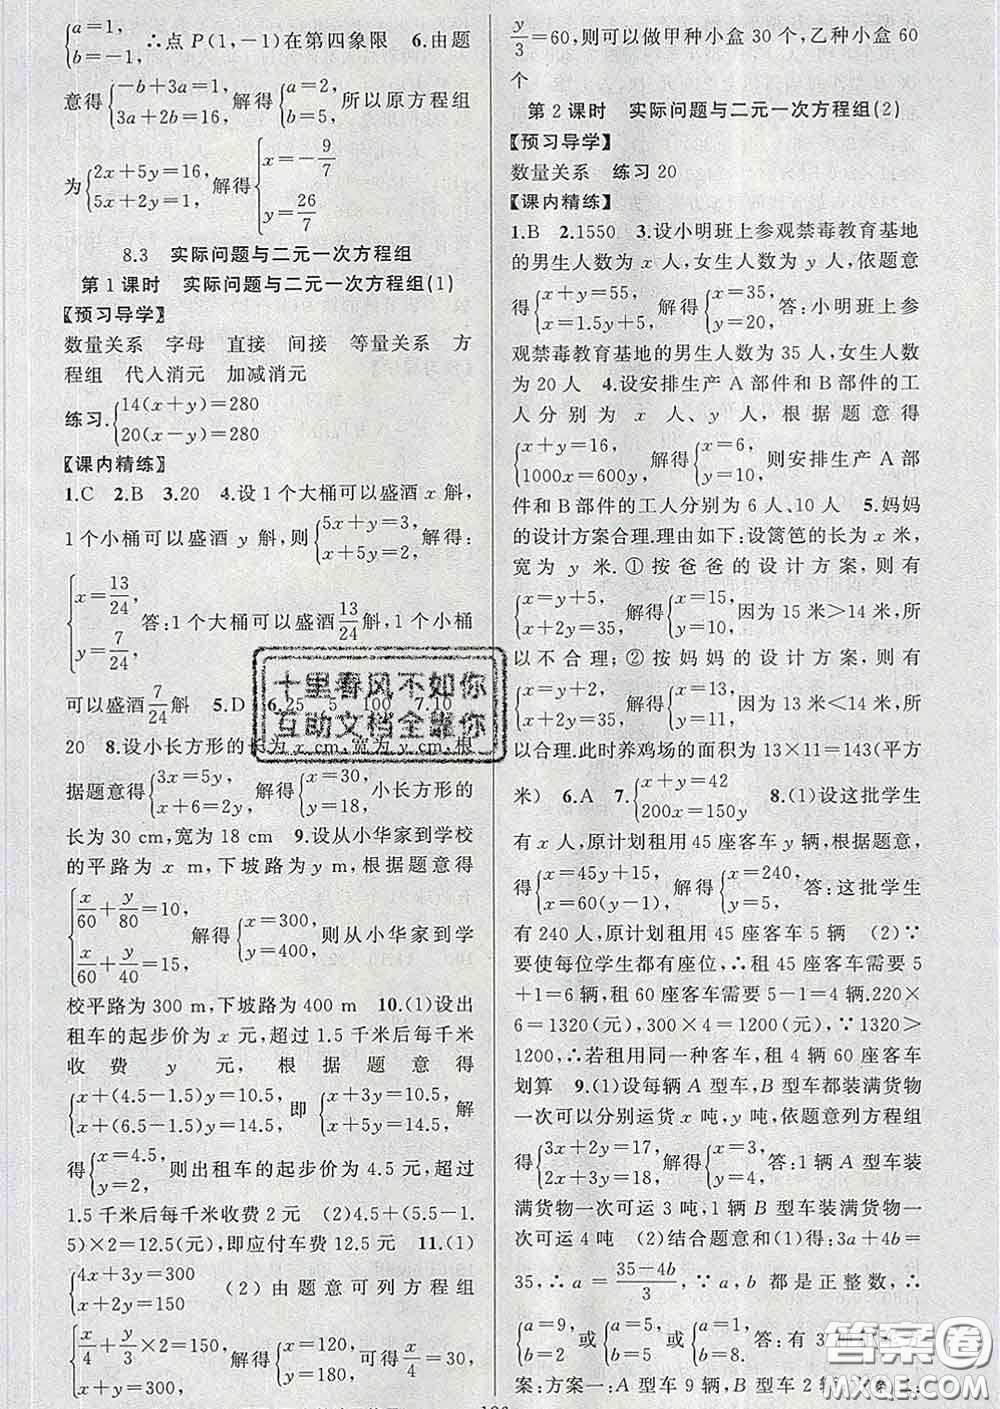 {a=1, b=-1, ∴点 P(1,-1)在第四象限 6.由题
意得{-b+3a=1, 3a+2b=16, 解得{a=2, b=5, 所以原方程组
为{2x+5y=16, 5x+2y=1, 解得{x=-9/7 y=26/7
8.3 实际问题与二元一次方程组
第1课时 实际问题与二元一次方程组(1)
【预习导学】
数量关系 字母 直接 间接 等量关系 方
程组 代人消元 加减消元
练习.{14(x+y)=280 20(x-y)=280
【课内精练】
1.C 2.B 3.20 4.设1个大桶可以盛酒 x 斛,
1个小桶可以盛酒 y 斛,则{5x+y=3, x+5y=2, 解得:
{x=13/24, y=7/24, 答:1个大桶可以盛酒13/24斛,1个小桶
可以盛酒7/24斛 5.D 6.25 5 100 7.10
20 8.设小长方形的长为 x cm,宽为 y cm,根
据题意得{3x=5y, x+6=2y, 解得{x=30, y=18, 小长方形的
长为 30 cm,宽为 18 cm 9.设从小华家到学校
的平路为 x m,下坡路为 y m,根据题意得
{x/60+y/80=10, x/60+y/40=15, 解得{x=300, y=400, 则从小华家到学
校平路为 300 m,下坡路为 400 m 10.(1)设出
租车的起步价为 x 元,超过 1.5 千米后每千米
收费 y 元,根据题意得
{x+(4.5-1.5)y=10.5, x+(6.5-1.5)y=14.5, 即{x+3y=10.5, x+5y=14.5, 解
得{x=4.5, y=2, 则出租车的起步价为 4.5 元,超过
1.5 千米后每千米收费 2 元 (2)4.5+(5.5-1.
5)×2=12.5(元),即应付车费 12.5 元 11.(1)
{4x+3y=300 x+2y=150 (2)由题意可列方程组
{x/4+y/3×2=150, x+y=300, 解得{x=120, y=180, 可得x/4=30,
y/3=60,则可以做甲种小盒 30 个,乙种小盒 60
个
第2课时 实际问题与二元一次方程组(2)
【预习导学】
数量关系 练习 20
【课内精练】
1.B 2.1550 3.设小明班上参观禁毒教育基地
的男生人数为 x 人,女生人数为 y 人,依题意
得{x+y=55, x=1.5y+5, 解得{x=35, y=20, 答:小明班上参
观禁毒教育基地的男生人数为 35 人,女生人数
为 20 人 4.设安排生产 A 部件和 B 部件的工
人分别为 x 人、y 人,根据题意得
{x+y=16, 1000x=600y, 解得{x=6, y=10, 则安排生产 A 部
件和 B 部件的工人分别为 6 人、10 人 5.妈妈
的设计方案合理.理由如下:设篱笆的长为 x 米,
宽为 y 米.①按爸爸的设计方案,则有
{x=y+5, x+2y=35, 解得{x=15, y=10, 因为 15 米>14 米,所
以不合理;②按妈妈的设计方案,则有
{x=y+2, x+2y=35, 解得{x=13, y=11, 因为 13 米<14 米,所
以合理.此时养鸡场的面积为 13×11=143(平方
米) 6.A 7.{x+y=42 200x=150y 8.(1)设这批学生
有 x 人,原计划租用 45 座客车 y 辆,根据题意,
得{x=45y+15, x=60(y-1), 解得{x=240, y=5, 答:这批学生
有 240 人,原计划租用 45 座客车 5 辆 (2)∵
要使每位学生都有座位,∴租 45 座客车需要 5
+1=6 辆,租 60 座客车需要 5-1=4 辆.220×
6=1320(元),300×4=1200(元),∵1320>
1200,∴若租用同一种客车,租 4 辆 60 座客车
划算 9.(1)设每辆 A 型车,B 型车都装满货物
一次可以分别运货 x 吨,y 吨,依题意列方程组
得{3x+2y=17, 2x+3y=18, 解得{x=3, y=4, 答:1 辆 A 型车装
满货物一次可运 3 吨,1 辆 B 型车装满货物一
次可运 4 吨 (2)结合题意和(1)得:3a+4b=
35,∴a=(35-4b)/3,∵a,b 都是正整数,∴
{a=9, b=2 或{a=5, b=5 或{a=1, b=8. 答:有 3
案:方案一:A 型车 9 辆,B 型车 2 辆
十里春风不如你
互助文档全靠你
答案卷
MXQE.COM